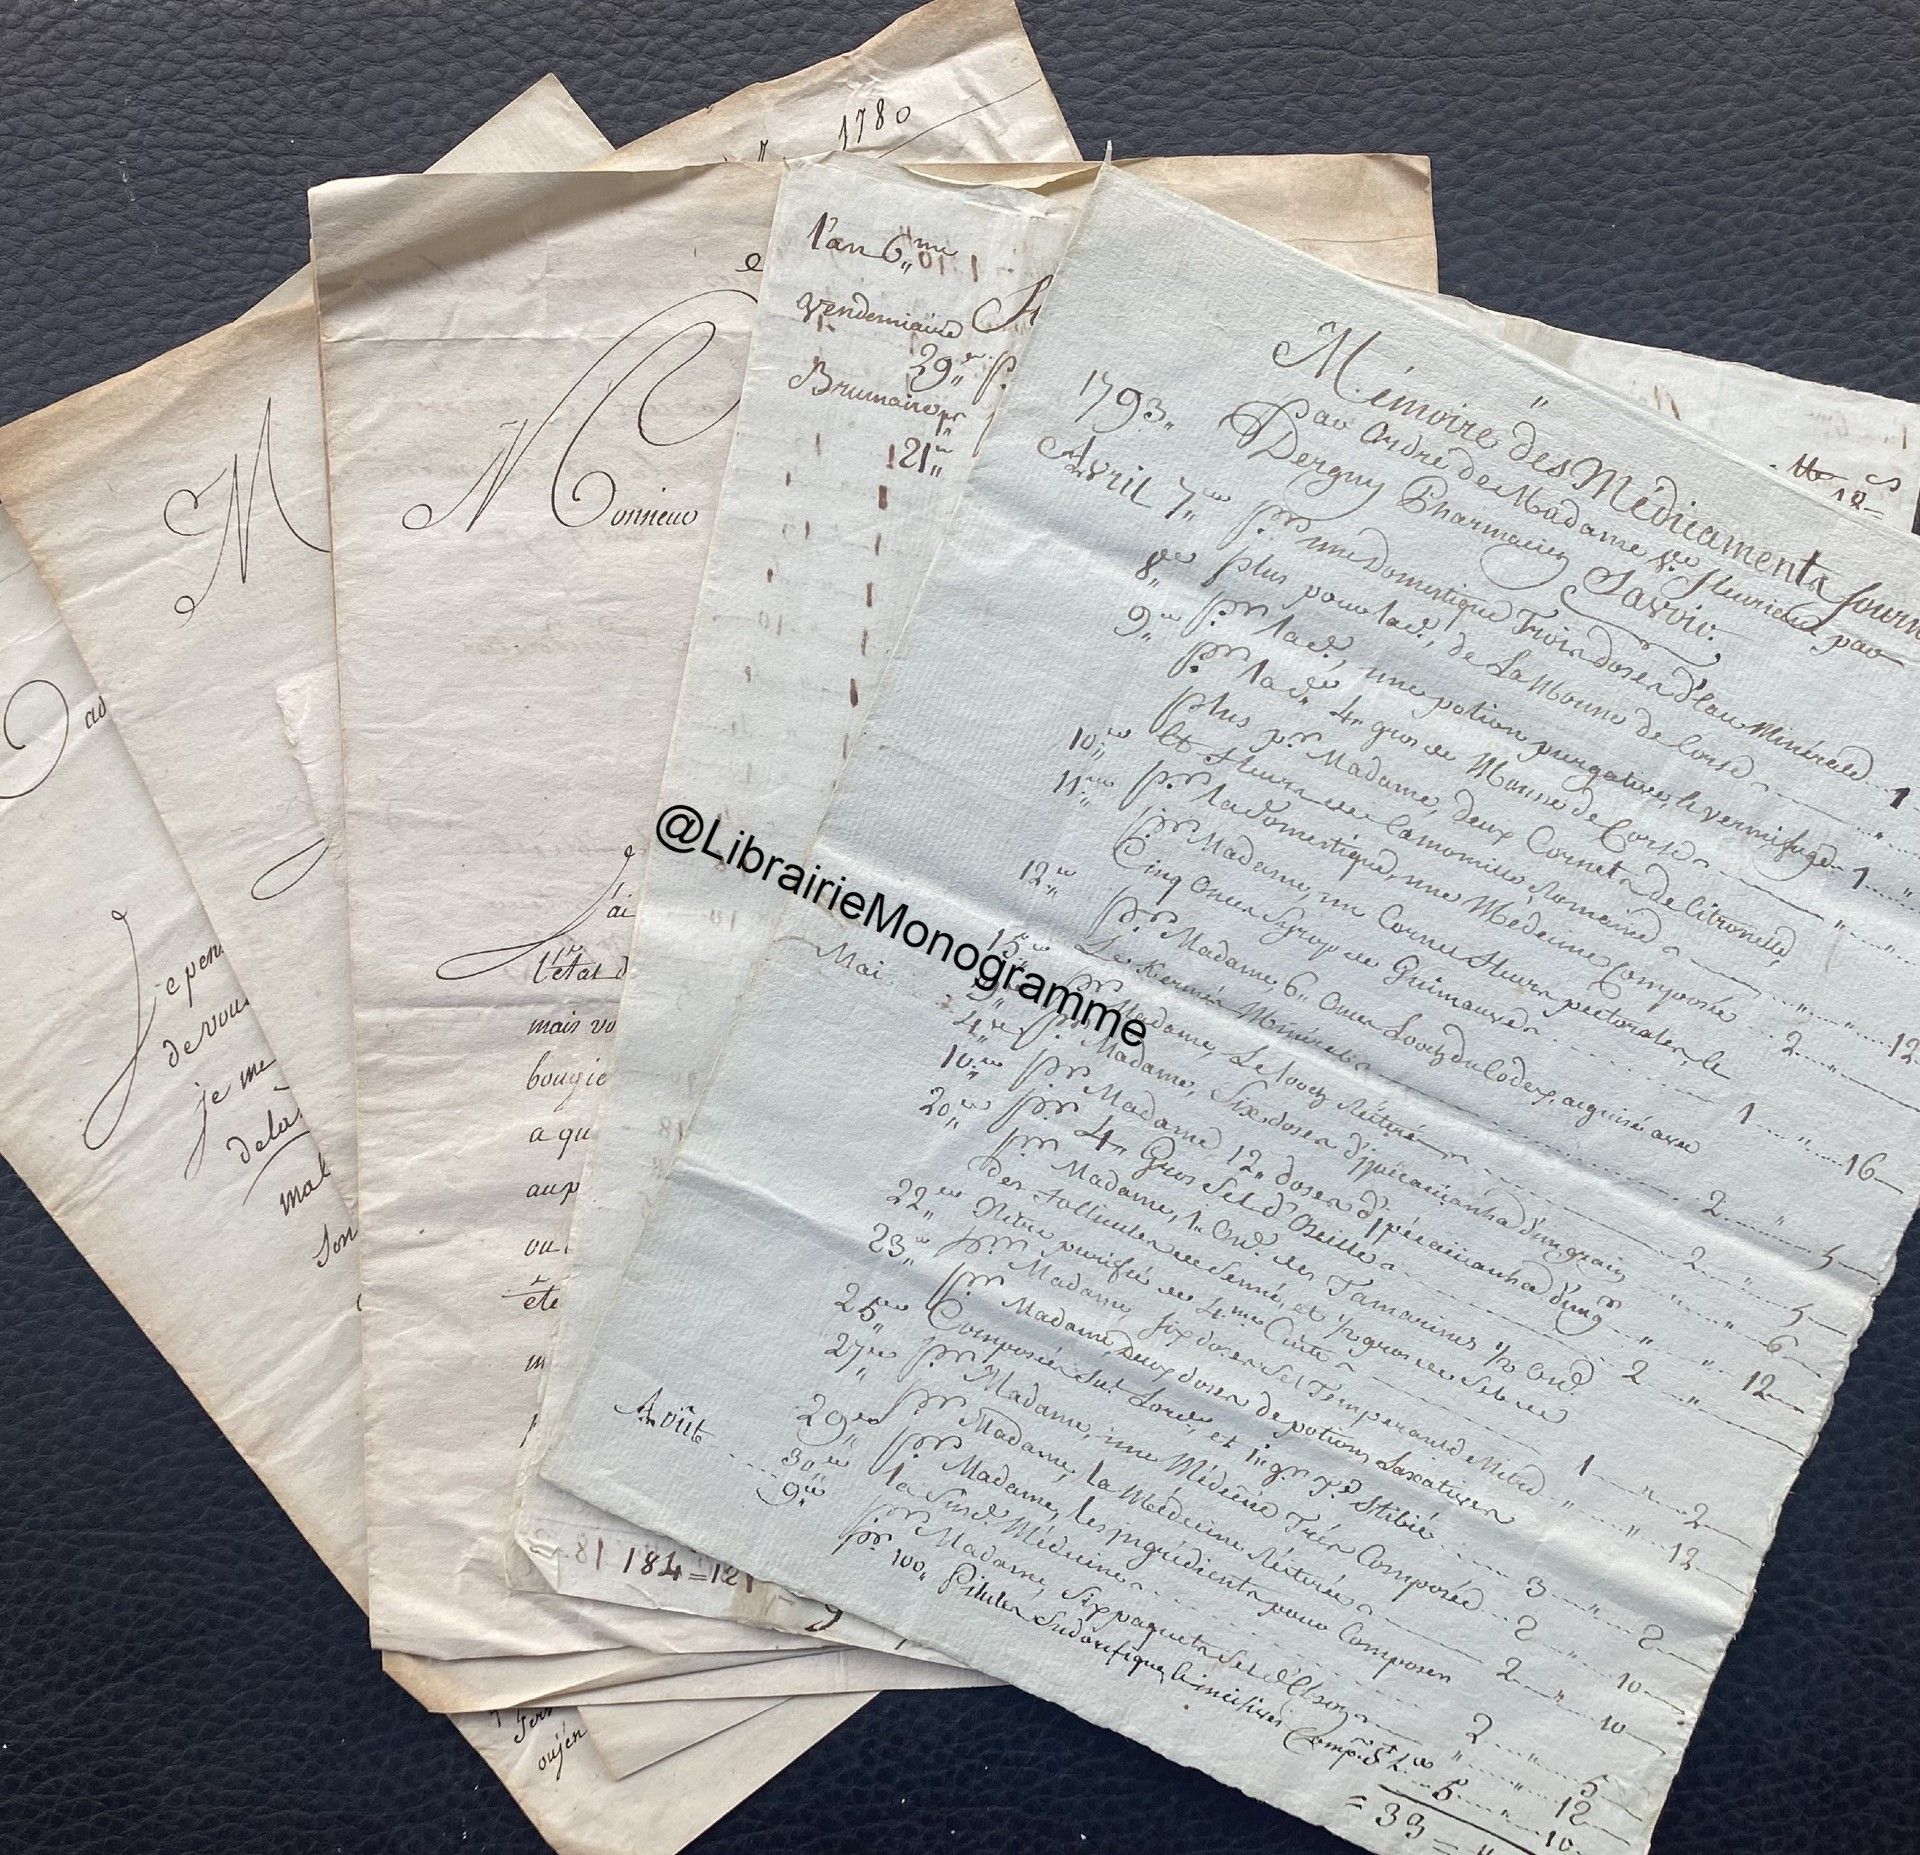 1780
l'an 6,,me
Vendemiaire
29,,
Brumaire
21,,
M
Monsieur
J'ai
l'état d
mais vo
bougie
a qu
aup
ou
été
Je pen
de vous
je me
delà
mal
Son
oujen
184=12
12=
Mémoire des Médicaments fourn
Par Ordre de Madame Ve. Fleurieau par
Dergny Pharmacien Savoir.
1793,,
Avril 7,, pr. une Domestique Trois doses d'Eau Minérale 1
8,, plus pour lad., de La Mousse de Corse
9,, pr. lad., une potion purgative, & vermifuge 1
pr. lad. 4,, gros de Mousse de Corse
plus pr. Madame, deux Cornets de Citronelle,
et fleurs de Camomille Romaine
10,, pr. la domestique, une Médecine Composée 2 12
11,, pr. Madame, un Cornet fleurs pectorales, &
Cinq Onces Syrop de Guimauve 1 16
12,, pr. Madame 6,, Onces Looch du Codex, aiguisé avec
Le Kermès Minéral 2
15,, pr. Madame, Le Looch Réitéré 2 5
Mai
pr. Madame, Six doses d'ipécacuanha d'un grain 5
4,, pr. Madame 12,, doses d'ipécacuanha d'un g 6
10,, pr. 4,, Gros Sel d'Oseille 2 12
20,, pr. Madame, 1,, Onc. des Tamarins 1/2 Onc.
des follicules de Senné, et 1/2 gros de Sel de
Nitre purifié de 4me Cuite 1 2
22,, pr. Madame, six doses Sel Tempérant de Nitre 12
23,, pr. Madame, Deux doses de potions Laxatives
Composées Sel. Lord, et 1,, gr. Stibié 3 2
25,, pr. Madame, une Médecine Très Composée 2 10
27,, pr. Madame, la Médecine Réitérée 2 10
29,, pr. Madame, les ingrédients pour Composer
la Susd. Médecine 2 5
Août
30,, pr. Madame, Six paquets Sel d'Epsom 12
9,, pr. 100,, Pilules Sudorifiques & incisives Comp. 5 10
= 39 =
@LibrairieMonogramme